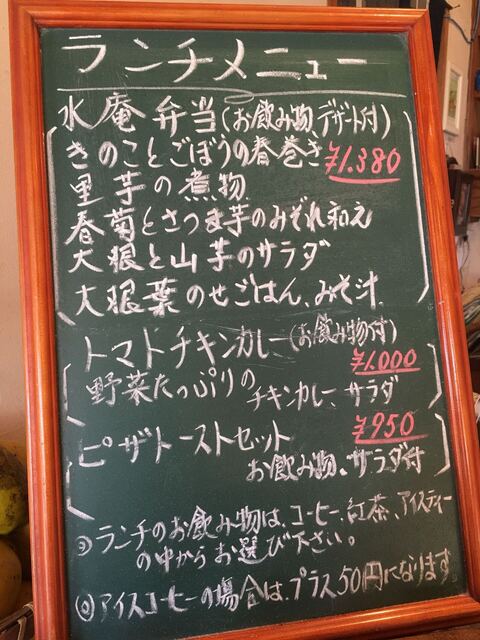 ランチメニュー
水庵弁当(お飲み物デザート付)
きのことごぼうの春巻き ¥1.380
里芋の煮物
春菊とさつま芋のみぞれ和え
大根と山芋のサラダ
大根葉のせごはん、みそ汁
トマトチキンカレー(お飲み物付)
¥1.000
野菜たっぷりの
チキンカレー、サラダ
ピザトーストセット ¥950
お飲み物、サラダ付
ランチのお飲み物は、コーヒー、紅茶、アイスティー
の中からお選び下さい。
アイスコーヒーの場合は、プラス50円になります